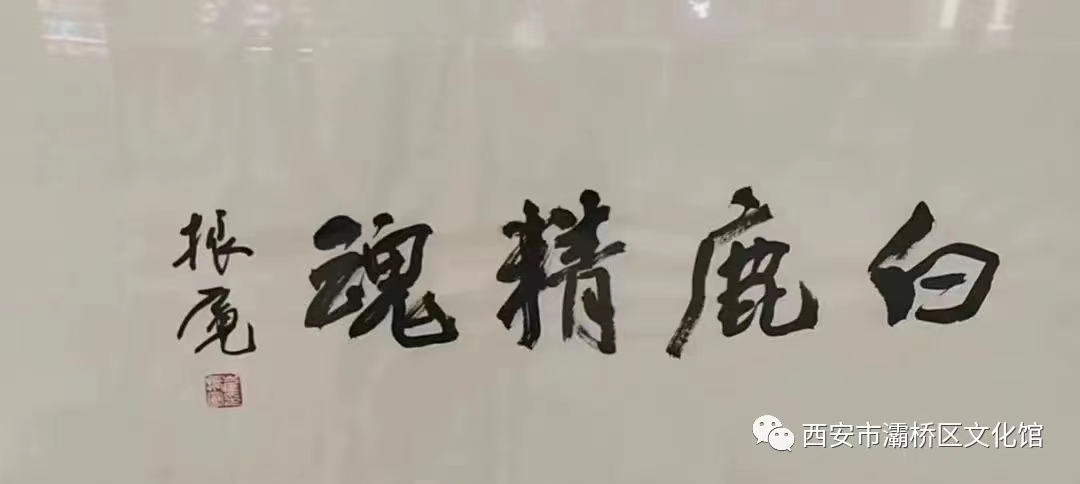 白鹿精魂
振
西安市灞桥区文化馆